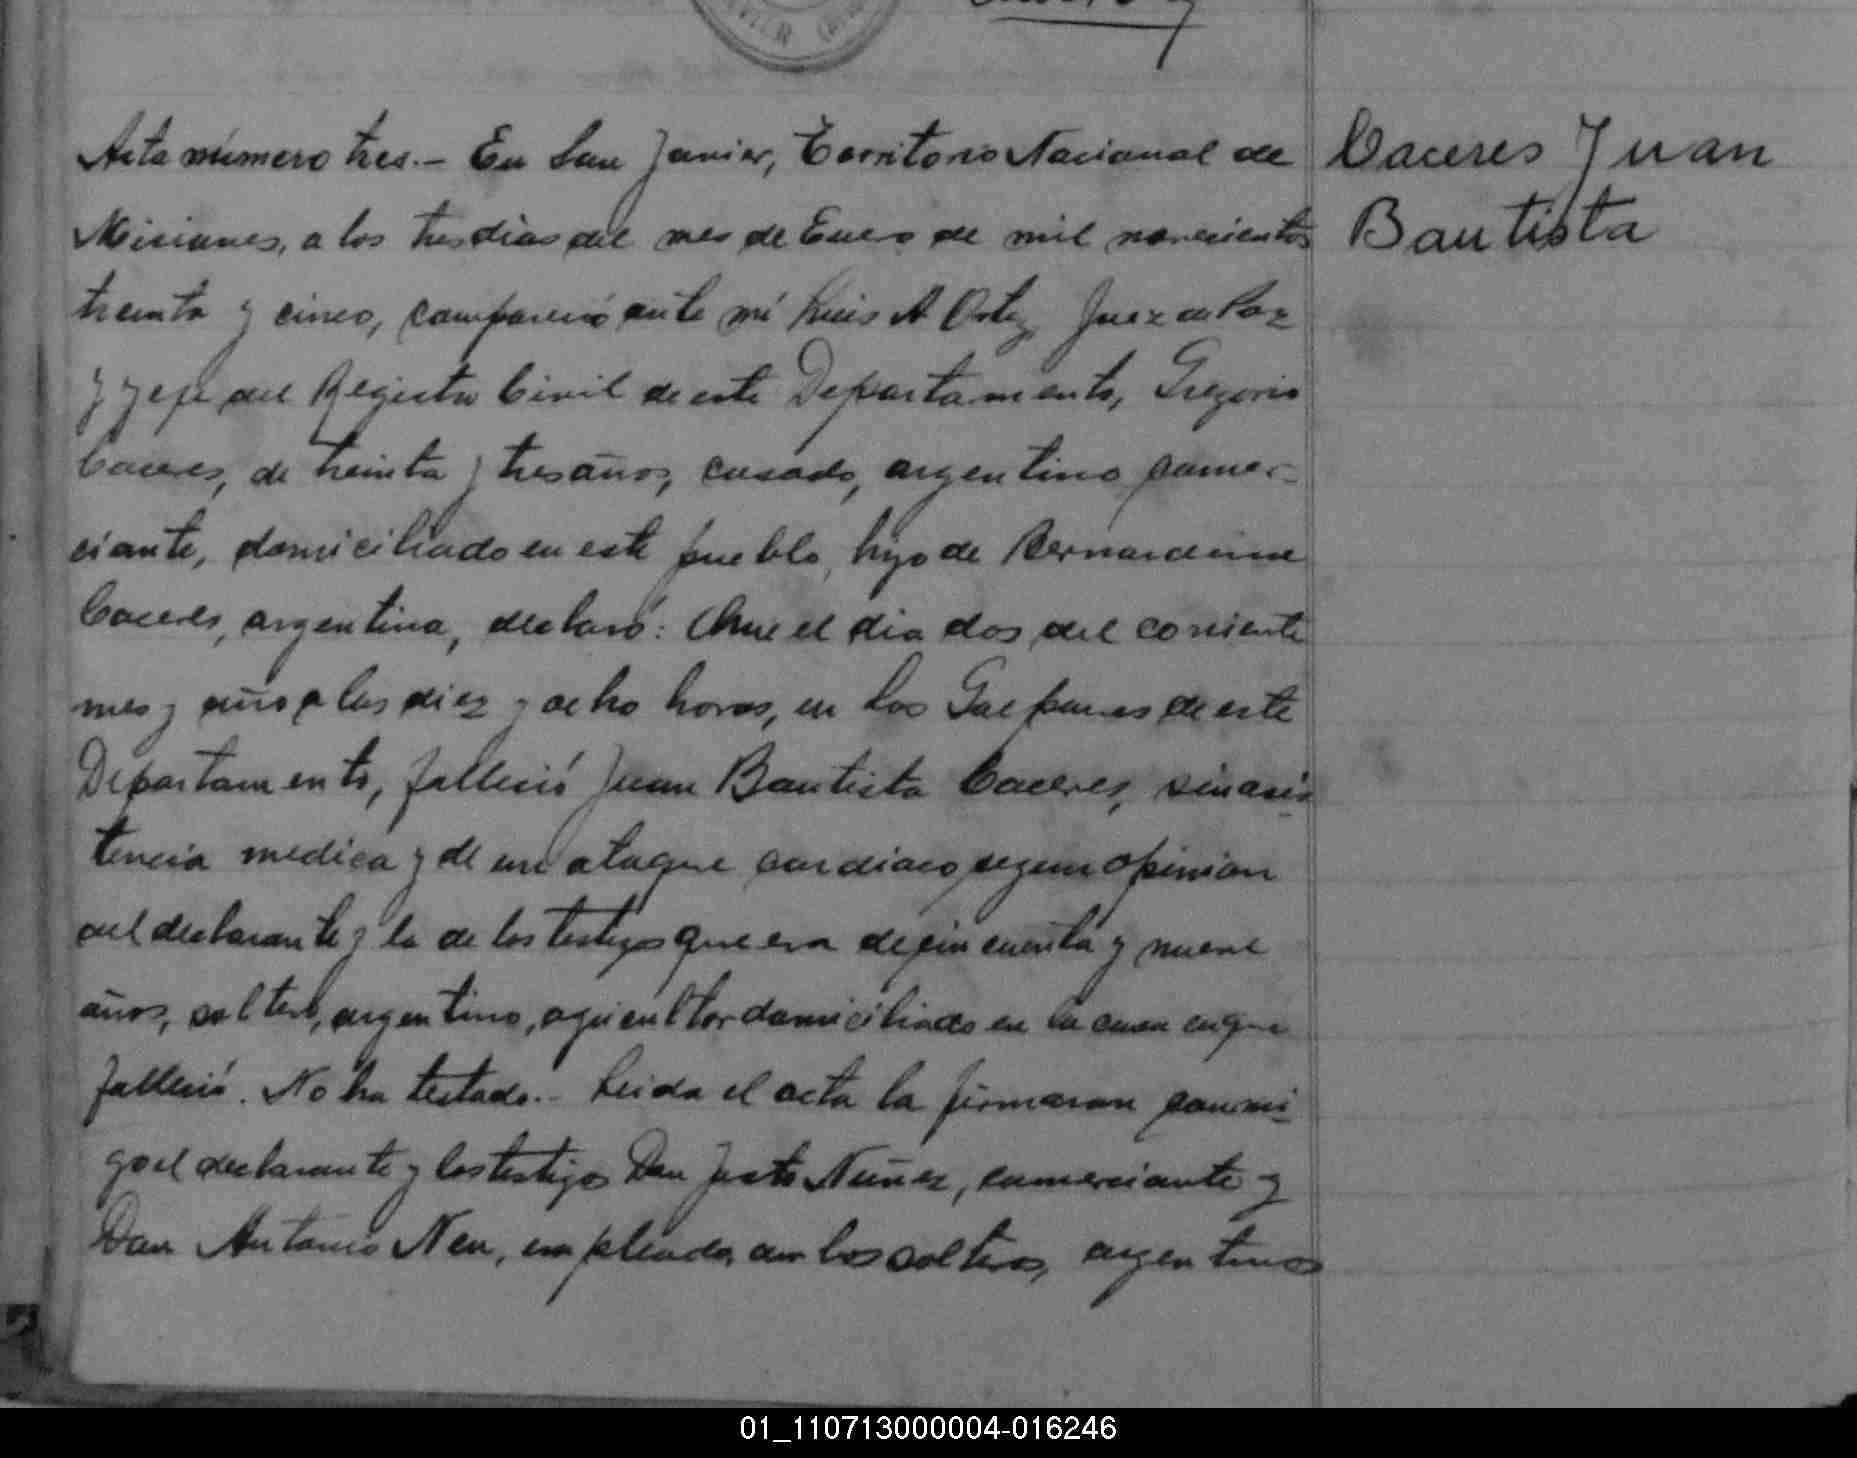 Acta número tres.- En San Javier, Territorio Nacional de
Misiones, a los tres dias del mes de Enero de mil novecientos
treinta y cinco, compareció ante mí Luis A Ortiz Juez de Paz
y Jefe del Registro Civil de este Departamento, Gregorio
Caceres, de treinta y tres años, casado, argentino comer-
ciante, domiciliado en este pueblo, hijo de Bernardina
Caceres, argentina, declaró: Que el dia dos del corriente
mes y año a las diez y ocho horas, en Los Galpones de este
Departamento, falleció Juan Bautista Caceres, sin asis-
tencia medica y de un ataque cardiaco segun opinion
del declarante y la de los testigos que era de cincuenta y nueve
años, soltero, argentino, agricultor domiciliado en la casa en que
falleció. No ha testado.- Leida el acta la firmaron conmi-
go el declarante y los testigos Don Justo Nuñez, comerciante y
Don Antonio Neu, empleado, ambos solteros, argentinos
Caceres Juan
Bautista
01_110713000004-016246